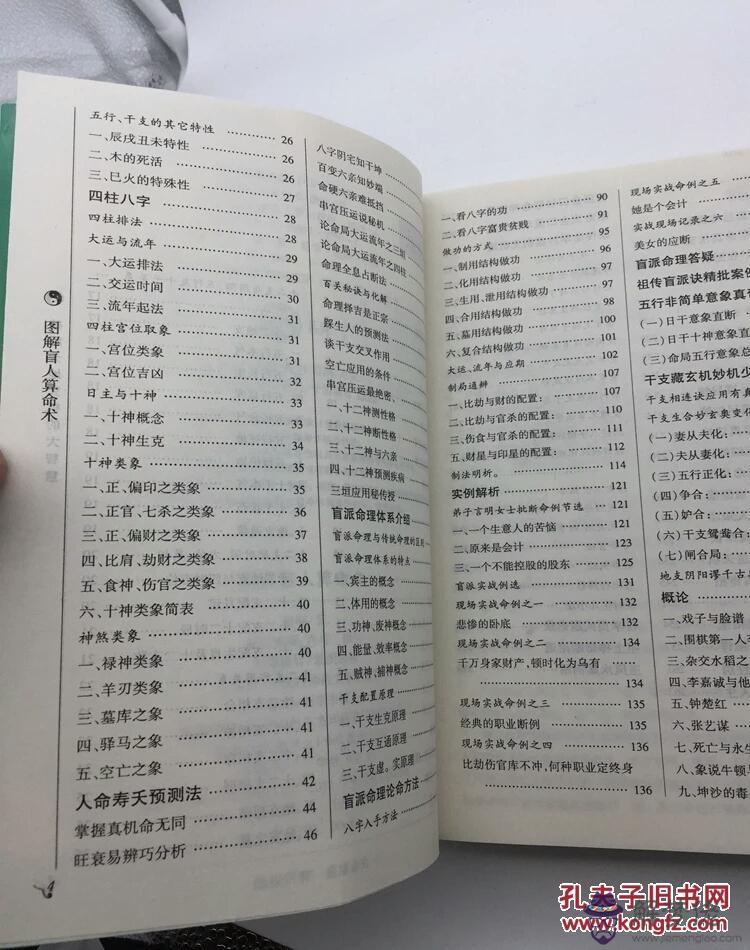 五行、干支的其它特性 ………… 26
一、辰戌丑未特性 ………… 26
二、木的死活 ………… 26
三、巳火的特殊性 ………… 27
四柱八字 ………… 28
四柱排法 ………… 28
大运与流年 ………… 29
一、大运排法 ………… 29
二、交运时间 ………… 30
三、流年起法 ………… 31
四柱宫位取象 ………… 31
一、宫位类象 ………… 31
二、宫位吉凶 ………… 32
日主与十神 ………… 33
一、十神概念 ………… 33
二、十神生克 ………… 34
十神类象 ………… 35
一、正、偏印之类象 ………… 35
二、正官、七杀之类象 ………… 36
三、正、偏财之类象 ………… 37
四、比肩、劫财之类象 ………… 38
五、食神、伤官之类象 ………… 39
六、十神类象简表 ………… 40
神煞类象 ………… 40
一、禄神类象 ………… 41
二、羊刃类象 ………… 41
三、墓库之象 ………… 41
四、驿马之象 ………… 41
五、空亡之象 ………… 41
人命寿夭预测法 ………… 42
掌握真机命无同 ………… 44
旺衰易辨巧分析 ………… 46
图解盲人算命术
4
八字阴宅知干坤
百变六亲知妙端
命硬六亲难抵挡
串宫压运说秘机
论命局大运流年之三垣
论命局大运流年之四柱
命理全息占断法
百关秘诀与化解
命理择吉是正宗
踩生人的预测法
谈干支交叉作用
空亡应用的条件
串宫压运最绝密、
一、十二神测性格
二、十二神断性格
三、十二神与六亲
四、十二神预测疾病
三垣应用秘传授
盲派命理体系介绍
盲派命理与传统命理的区别
盲派命理体系的特点
一、宾主的概念
二、体用的概念
三、功神、废神概念
四、能量、效率概念
五、贼神、捕神概念
干支配置原理
一、干支生克原理
二、干支互通原理
三、干支虚、实原理
盲派命理论命方法
八字入手方法
一、看八字的功 ………… 90
二、看八字富贵贫贱 ………… 91
做功的方式 ………… 95
一、制用结构做功 ………… 96
二、化用结构做功 ………… 97
三、生用、泄用结构做功 ………… 98
四、合用结构做功 ………… 98
五、墓用结构做功 ………… 100
六、复合结构做功 ………… 101
大运、流年与应期 ………… 102
制局通辨 ………… 107
一、比劫与财的配置： ………… 107
二、比劫与官杀的配置： ………… 110
三、伤食与官杀的配置： ………… 111
五、财星与印星的配置： ………… 112
制法明析。 ………… 114
实例解析 ………… 121
弟子言明女士批断命例节选 ………… 121
一、一个生意人的苦恼 ………… 121
二、原来是会计 ………… 123
三、一个不能控股的股东 ………… 125
盲派实战例选 ………… 131
现场实战命例之一 ………… 132
悲惨的卧底 ………… 132
现场实战命例之二 ………… 134
千万身家财产，顿时化为乌有
………… 134
现场实战命例之三 ………… 135
经典的职业断例 ………… 135
现场实战命例之四 ………… 136
比劫伤官库不冲，何种职业定终身
………… 136
现场实战命例之五
她是个会计
实战现场记录之六
美女的应断
盲派命理答疑
祖传盲派诀精批案例
五行非简单意象真
(一)日干意象直断
(二)日干十神意象直
(三)命局五行意象总
干支藏玄机妙机少
干支相连诀应用有真
干支生合妙玄奥变化
(一)妻从夫化：
(二)夫从妻化：
(三)五行正化：
(四)争合：
(五)妒合：
(六)干支鸳鸯合：
(七)闸合局：
地支阴阳谬千古
概论
一、戏子与脸谱
二、围棋第一人
三、杂交水稻之
四、李嘉诚与他
五、钟楚红
六、张艺谋
七、死亡与永生
八、象说牛顿
九、坤沙的毒
孔夫子旧书网
www.kongfz.com
www.jiemengjiao.com